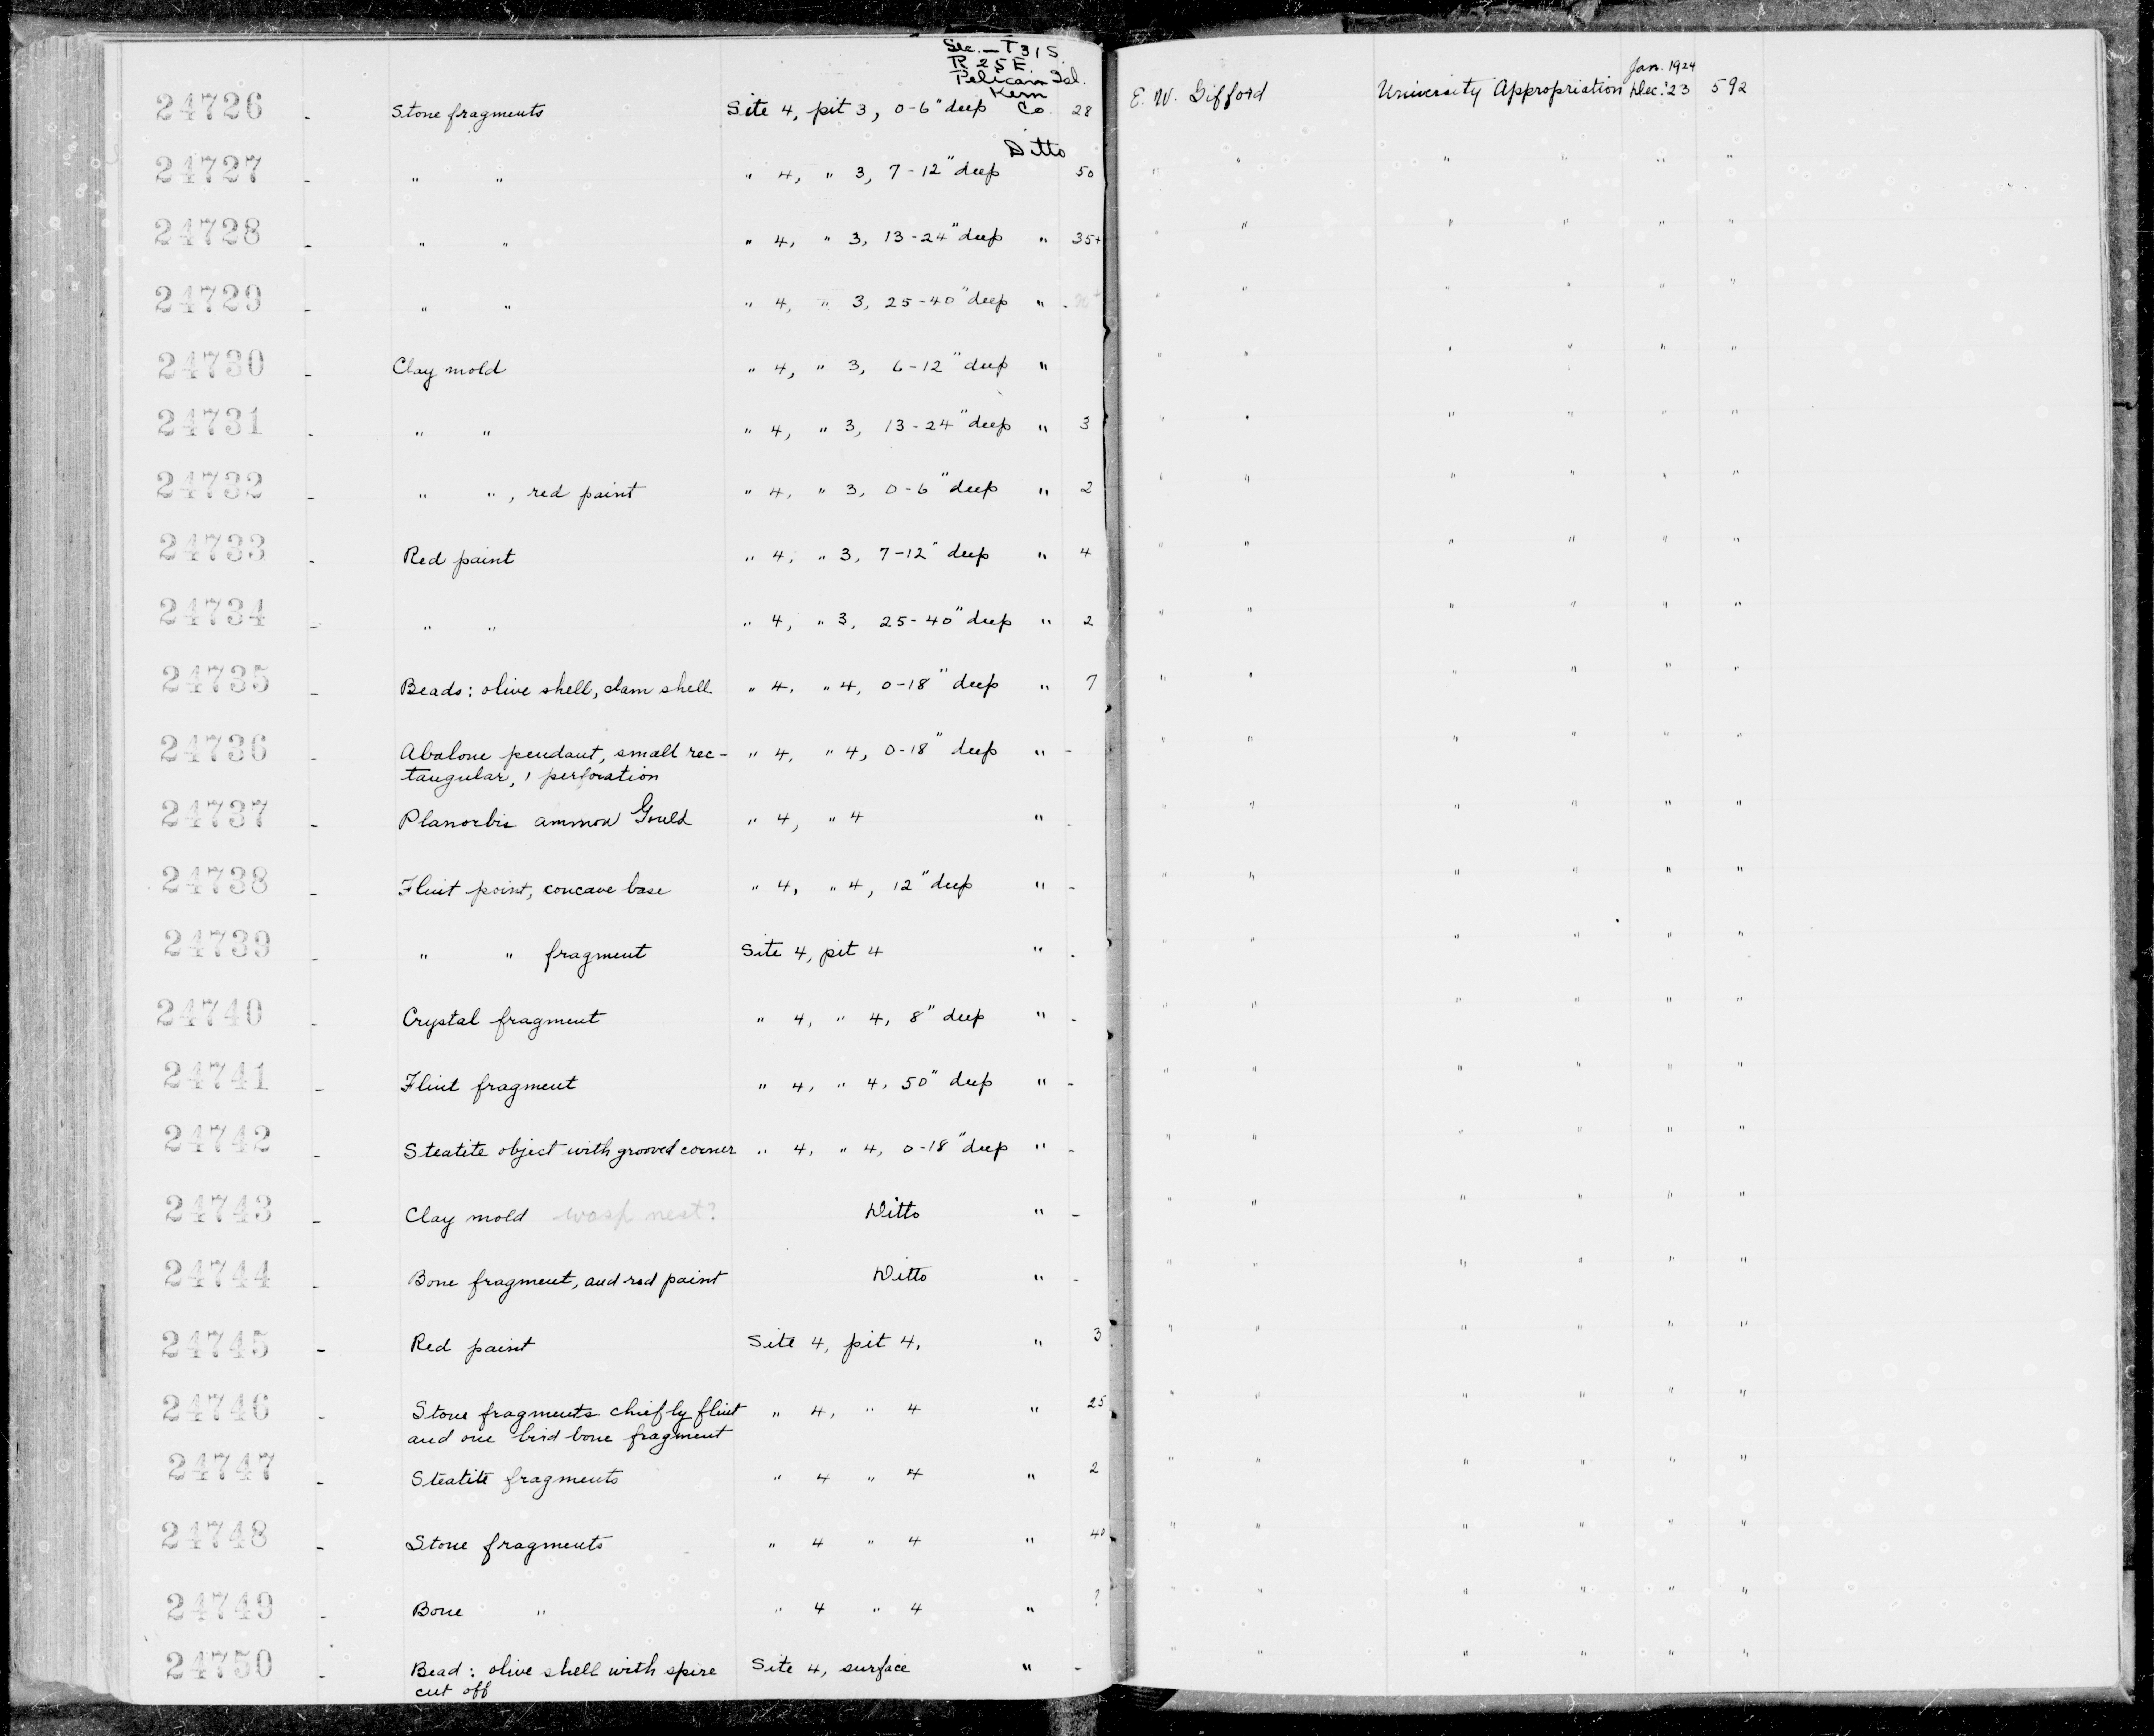 Sec. — T31S
R 25E
Pelican Isl.
Kern
24726 - Stone fragments Site 4, pit 3, 0-6" deep Co. 28 E. W. Gifford University Appropriation Jan. 1924 Dec. '23 592
Ditto
24727 - " " " 4, " 3, 7-12" deep 50 " " " " " "
24728 - " " " 4, " 3, 13-24" deep " 35+ " " " " " "
24729 - " " " 4, " 3, 25-40" deep " " " " " " "
24730 - Clay mold " 4, " 3, 6-12" deep " " " " " " "
24731 - " " " 4, " 3, 13-24" deep " 3 " " " " " "
24732 - " " , red paint " 4, " 3, 0-6" deep " 2 " " " " " "
24733 - Red paint " 4, " 3, 7-12" deep " 4 " " " " " "
24734 - " " " 4, " 3, 25-40" deep " 2 " " " " " "
24735 - Beads: olive shell, clam shell " 4, " 4, 0-18" deep " 7 " " " " " "
24736 - Abalone pendant, small rec- " 4, " 4, 0-18" deep " - " " " " " "
tangular, 1 perforation
24737 - Planorbis ammon Gould " 4, " 4 " - " " " " " "
24738 - Flint point, concave base " 4, " 4, 12" deep " - " " " " " "
24739 - " " fragment Site 4, pit 4 " - " " " " " "
24740 - Crystal fragment " 4, " 4, 8" deep " - " " " " " "
24741 - Flint fragment " 4, " 4, 50" deep " - " " " " " "
24742 - Steatite object with grooved corner " 4, " 4, 0-18" deep " - " " " " " "
24743 - Clay mold wasp nest? Ditto " - " " " " " "
24744 - Bone fragment, and red paint Ditto " - " " " " " "
24745 - Red paint Site 4, pit 4, " 3 " " " " " "
24746 - Stone fragments chiefly flint " 4, " 4 " 25 " " " " " "
and one bird bone fragment
24747 - Steatite fragments " 4 " 4 " 2 " " " " " "
24748 - Stone fragments " 4 " 4 " 40 " " " " " "
24749 - Bone " " 4 " 4 " ? " " " " " "
24750 - Bead: olive shell with spire Site 4, surface " - " " " " " "
cut off